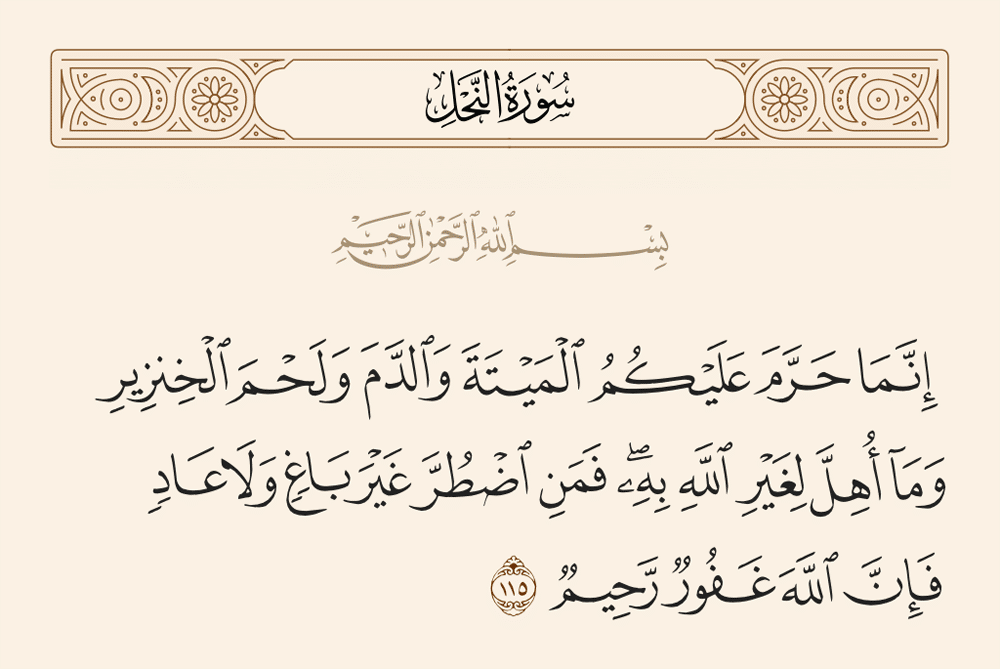 سُورَةُ النَّحْلِ
بِسْمِ ٱللَّهِ ٱلرَّحْمَٰنِ ٱلرَّحِيمِ
إِنَّمَا حَرَّمَ عَلَيْكُمُ ٱلْمَيْتَةَ وَٱلدَّمَ وَلَحْمَ ٱلْخِنزِيرِ
وَمَآ أُهِلَّ لِغَيْرِ ٱللَّهِ بِهِۦۖ فَمَنِ ٱضْطُرَّ غَيْرَ بَاغٍ وَلَا عَادٍ
فَإِنَّ ٱللَّهَ غَفُورٌ رَّحِيمٌ ١١٥